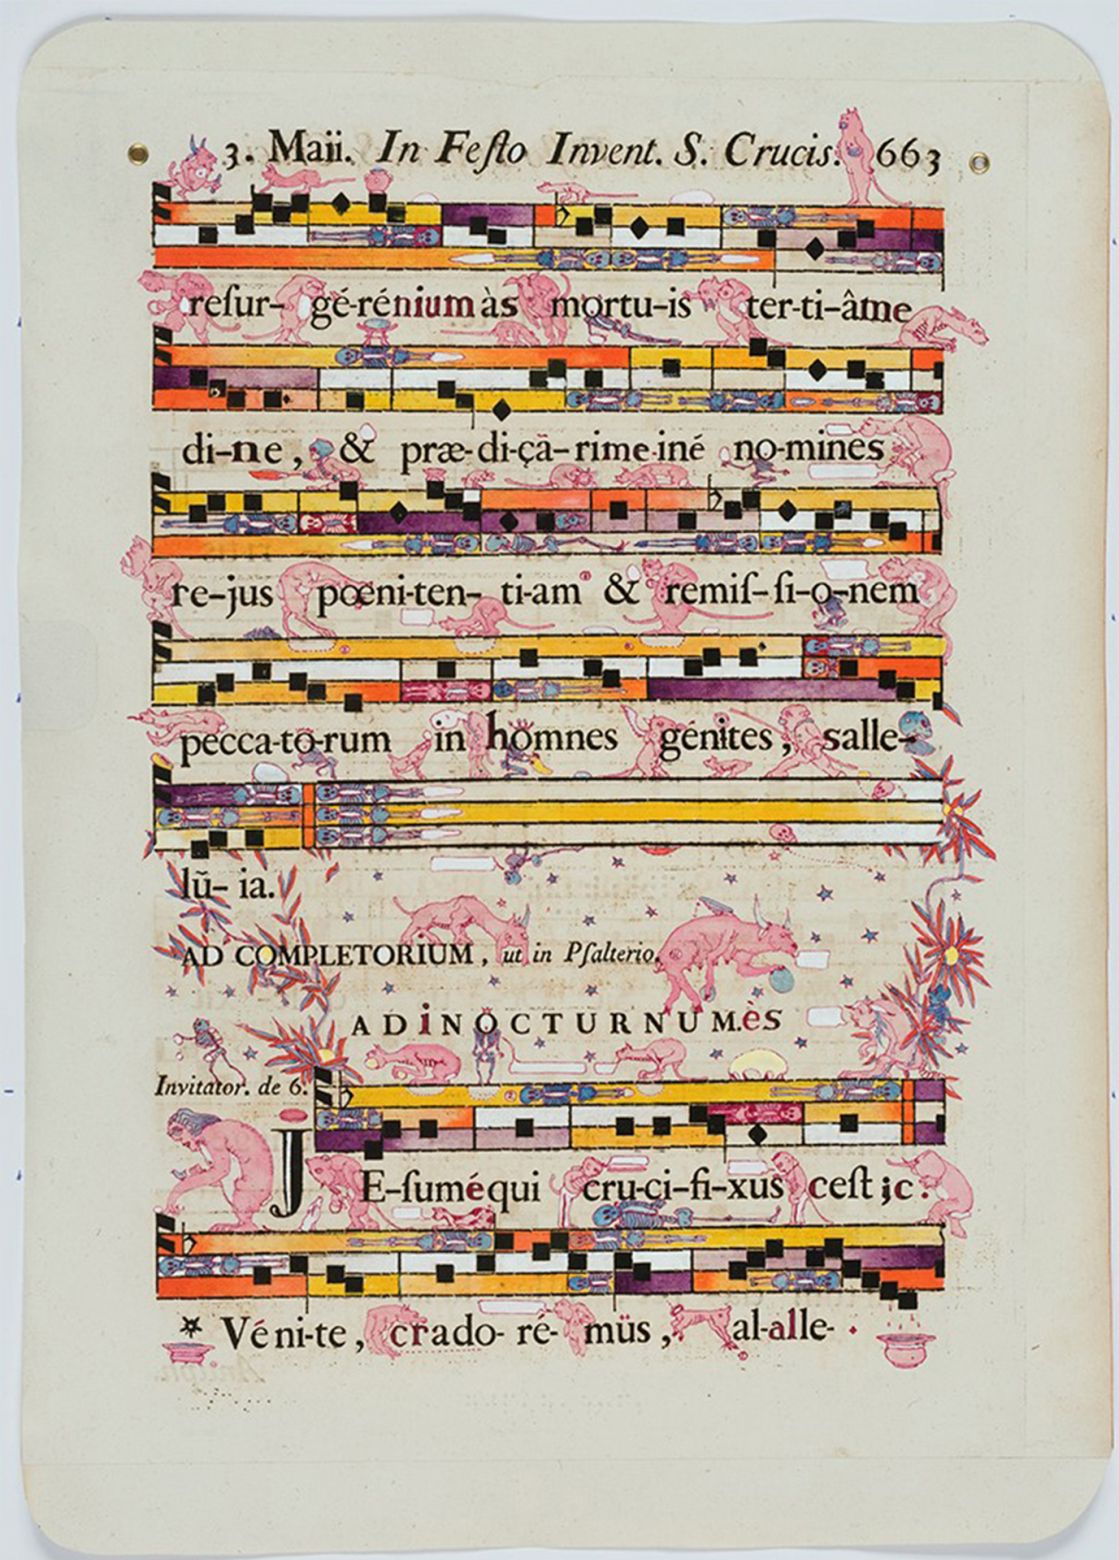 3. Maii. In Feſto Invent. S. Crucis. 663
reſur- gé-rénium às mortu-is ter-ti-âme
di-ne, & præ-di-çã-rime-iné no-mines
re-jus pœni-ten- ti-am & remiſ-ſi-o-nem
pecca-to-rum in hômnes génites, salle-
lũ- ia.
AD COMPLETORIUM, ut in Pſalterio.
ADiNOCTURNUM.ès
Invitator. de 6.
JE-ſuméqui cru-ci-fi-xus ceſt ;c.
* Véni-te, crado- ré- müs, al-alle-